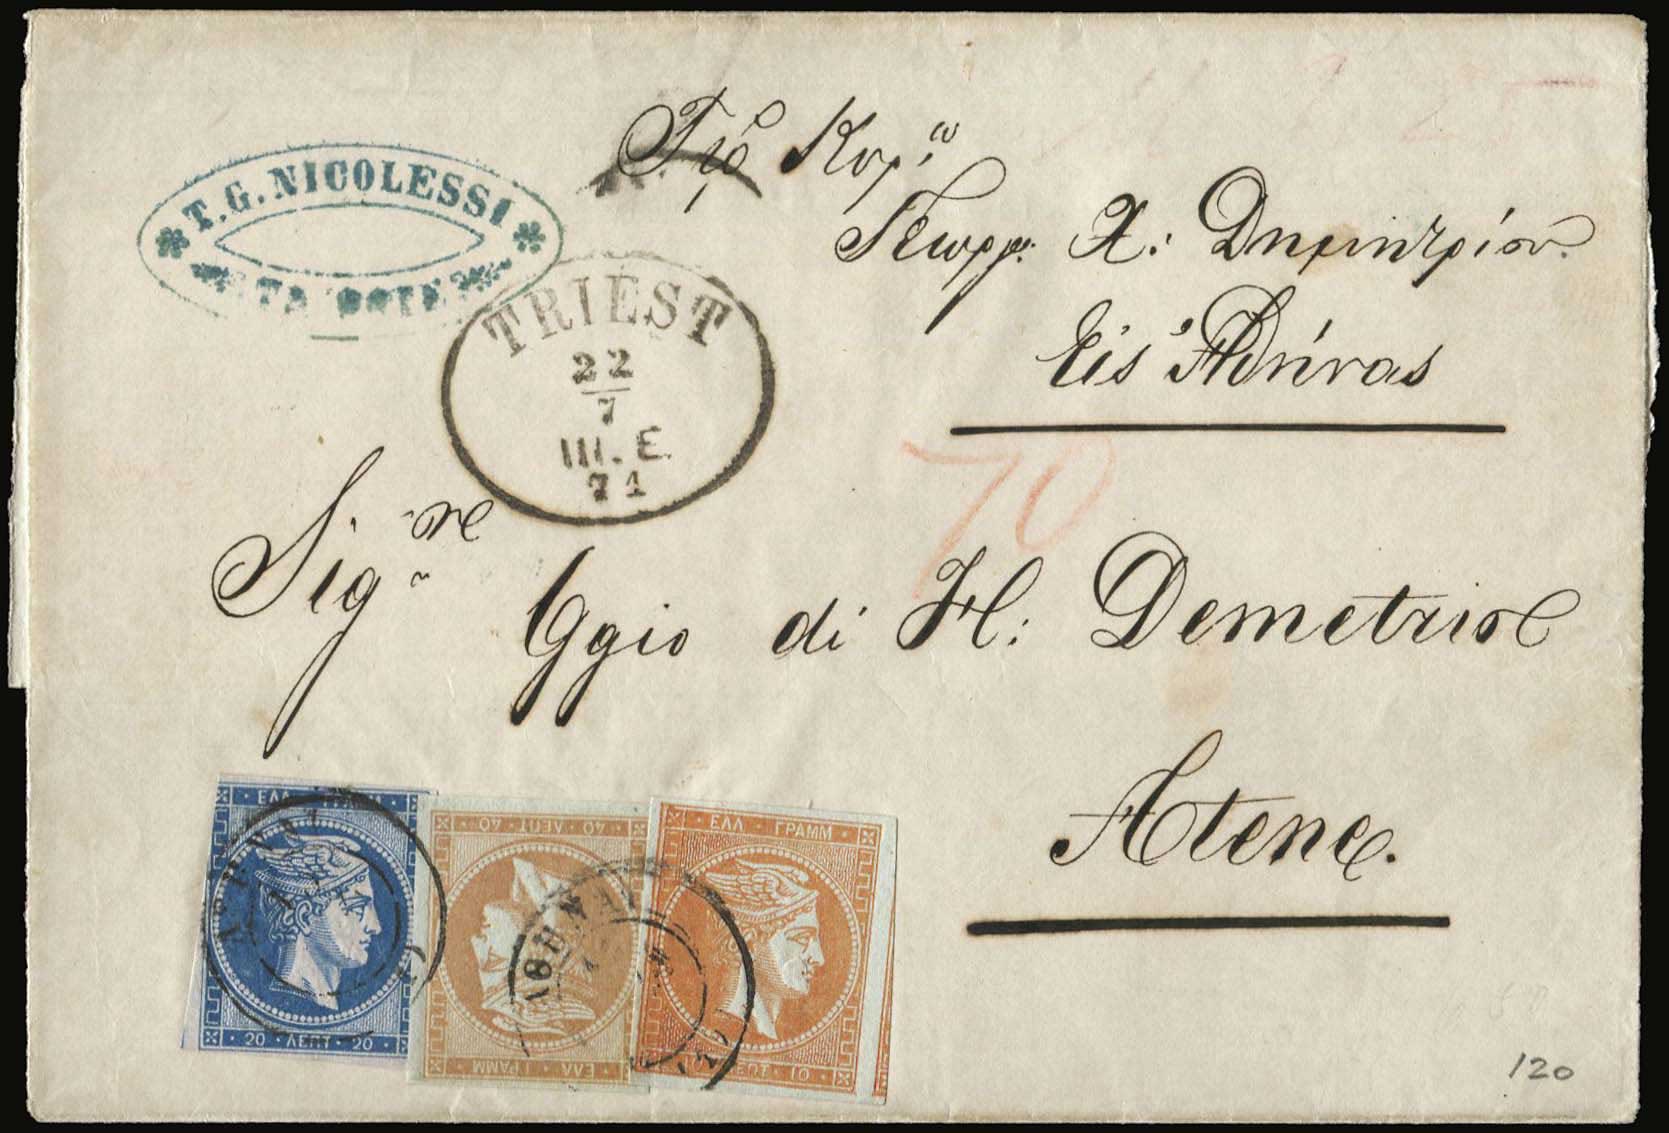 T. G. NICOLESSI
TRIEST
22
7
III. E.
71
Τῷ Κυρίῳ
Γεωργ. Χ: Δημητρίου.
Εἰς Ἀθήνας
70
Sig.re
Ggio di H: Demetrio
Atene.
ΕΛΛ ΓΡΑΜΜ
20 · ΛΕΠΤ · 20
40 · ΛΕΠΤ · 40
ΕΛΛ ΓΡΑΜΜ
ΑΘΗΝΑΙ
ΕΛΛ · ΓΡΑΜΜ
10
120